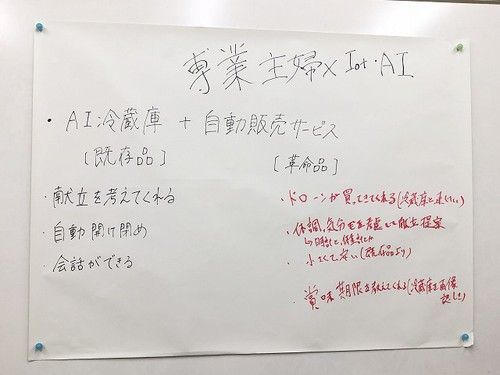 専業主婦×Iot・AI
・AI冷蔵庫 + 自動販売サービス
[既存品]
[革命品]
・献立を考えてくれる
・自動開け閉め
・会話ができる
・ドローンが買ってきてくれる(冷蔵庫と
・体調、気分を考慮して献立提案
・小さくて安い(既存品より)
・賞味期限を教えてくれる(冷蔵庫を画像
認しき)